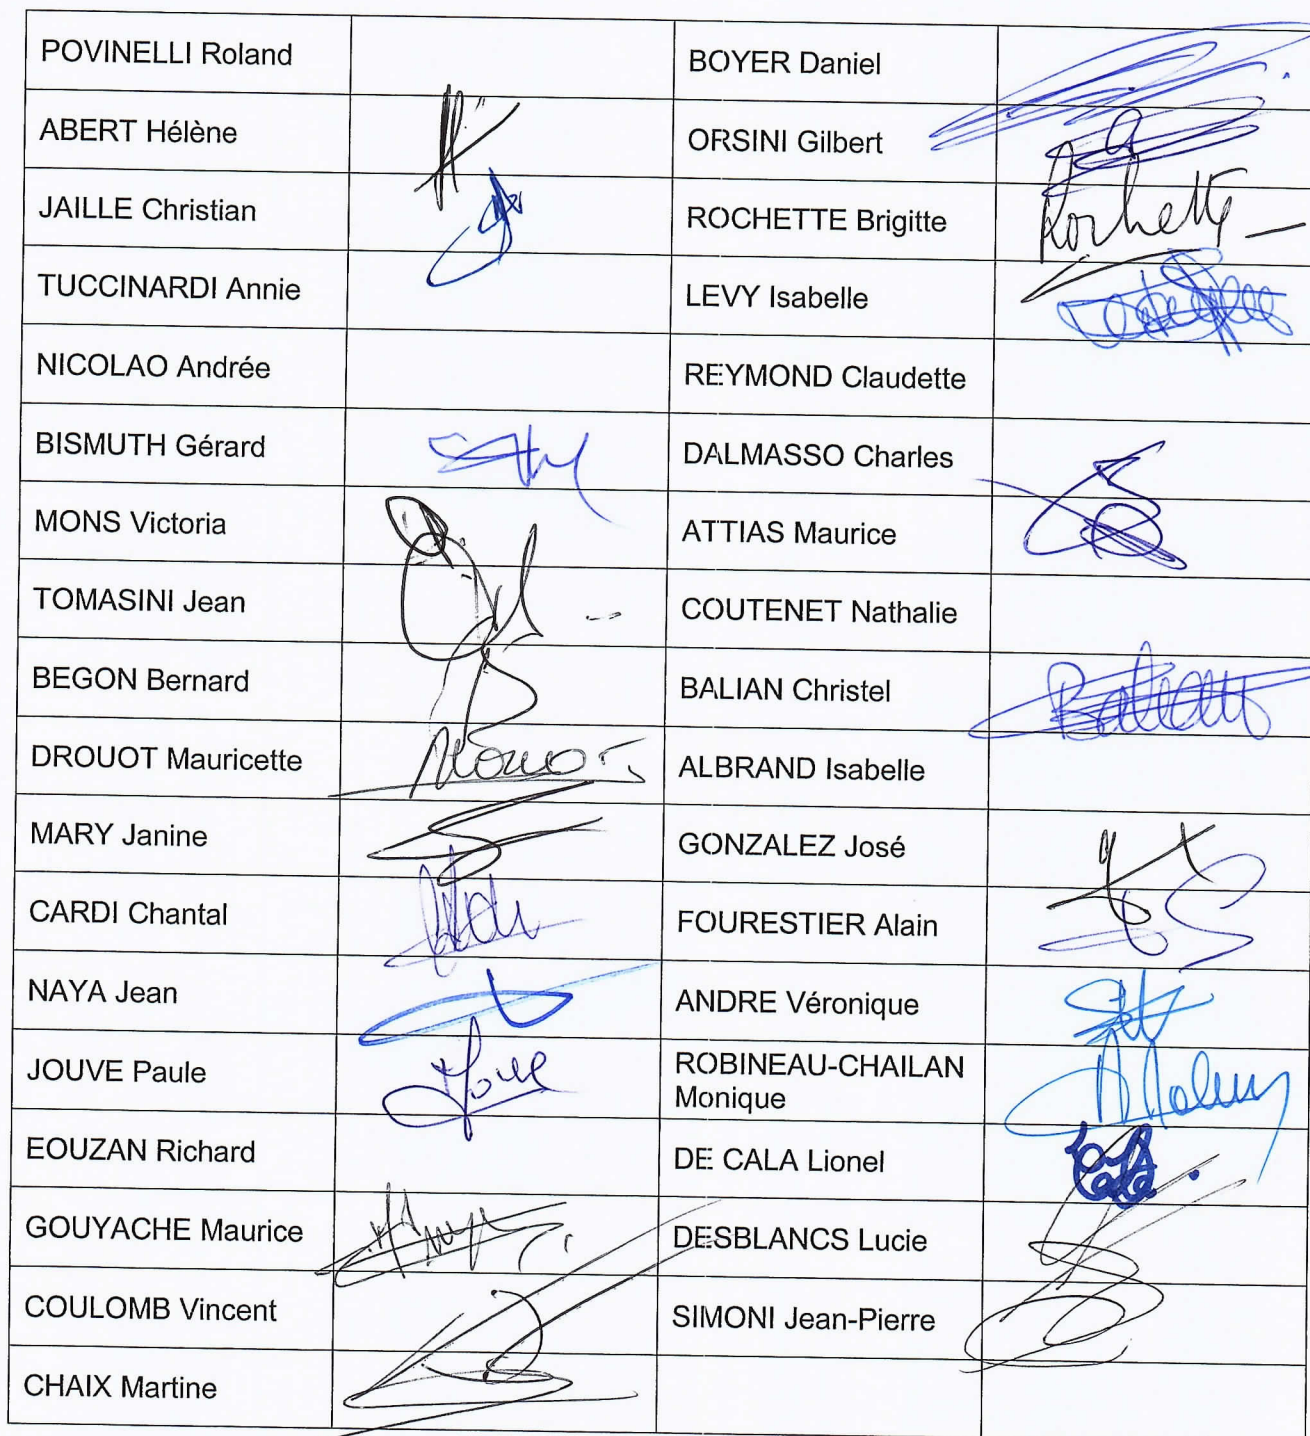 POVINELLI Roland BOYER Daniel
ABERT Hélène ORSINI Gilbert
JAILLE Christian ROCHETTE Brigitte Rochette
TUCCINARDI Annie LEVY Isabelle
NICOLAO Andrée REYMOND Claudette
BISMUTH Gérard DALMASSO Charles
MONS Victoria ATTIAS Maurice
TOMASINI Jean COUTENET Nathalie
BEGON Bernard BALIAN Christel
DROUOT Mauricette ALBRAND Isabelle
MARY Janine GONZALEZ José
CARDI Chantal FOURESTIER Alain
NAYA Jean ANDRE Véronique
JOUVE Paule ROBINEAU-CHAILAN
Monique
EOUZAN Richard DE CALA Lionel
GOUYACHE Maurice DESBLANCS Lucie
COULOMB Vincent SIMONI Jean-Pierre
CHAIX Martine